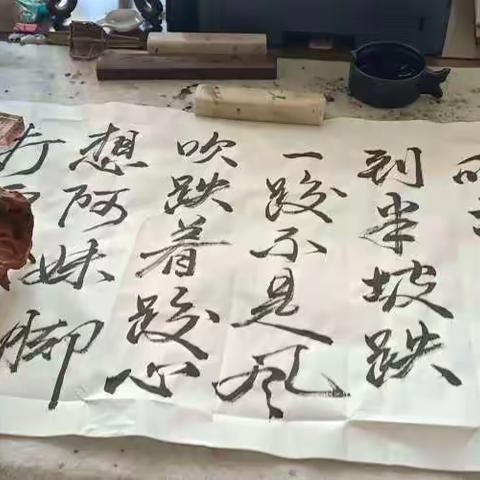 到半坡跌
一跤不是风
吹跌着跤心
想阿妹脚